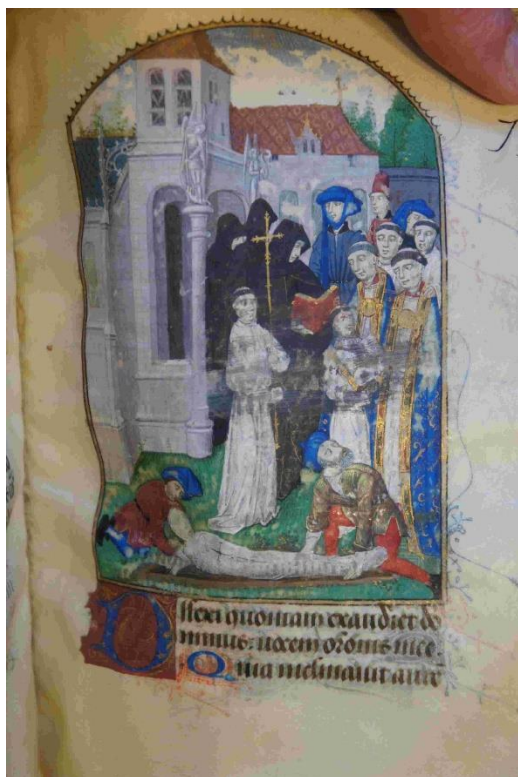 Dilexi quoniam exaudiet do
minus: uocem oronis mee.
Quia inclinauit aurē